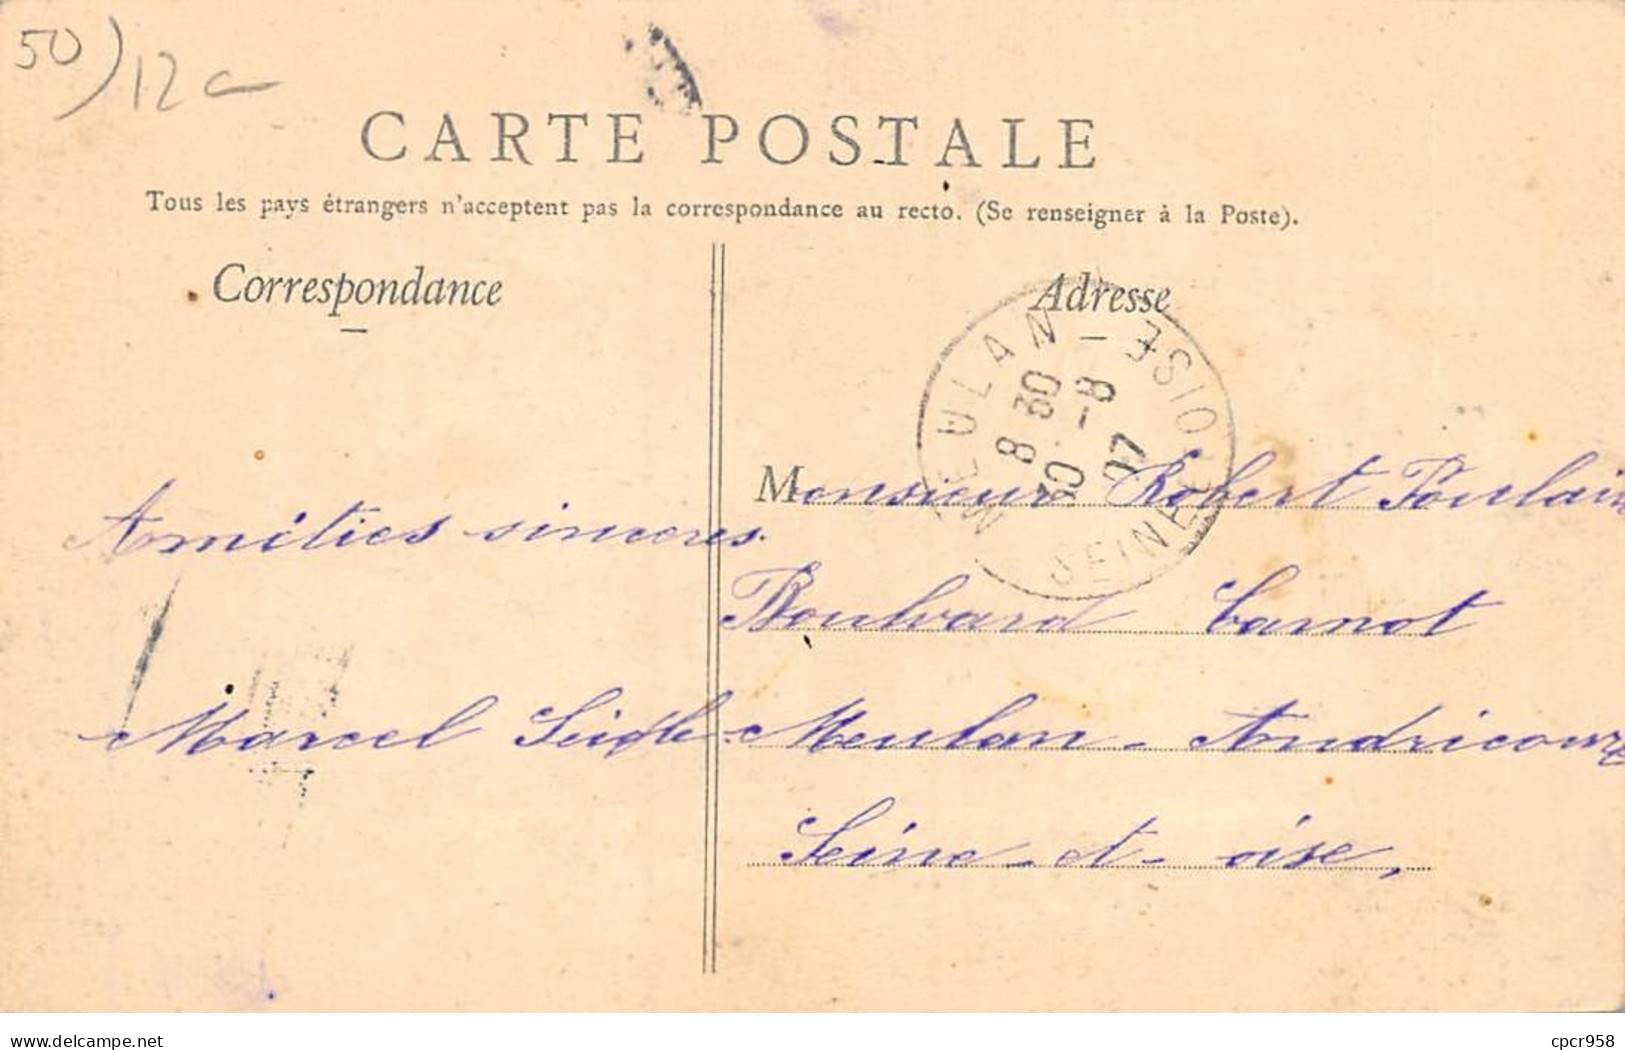 50) 12c
CARTE POSTALE
Tous les pays étrangers n'acceptent pas la correspondance au recto. (Se renseigner à la Poste).
Correspondance
Adresse
MEULAN
SEINE-ET-OISE
8 30
30 -8
07
Amitiés sincères.
Marcel
Monsieur Robert Poulain
Boulvard Carnot
Meulan - Andricourt
Seine-et-oise,
www.delcampe.net
cpcr958